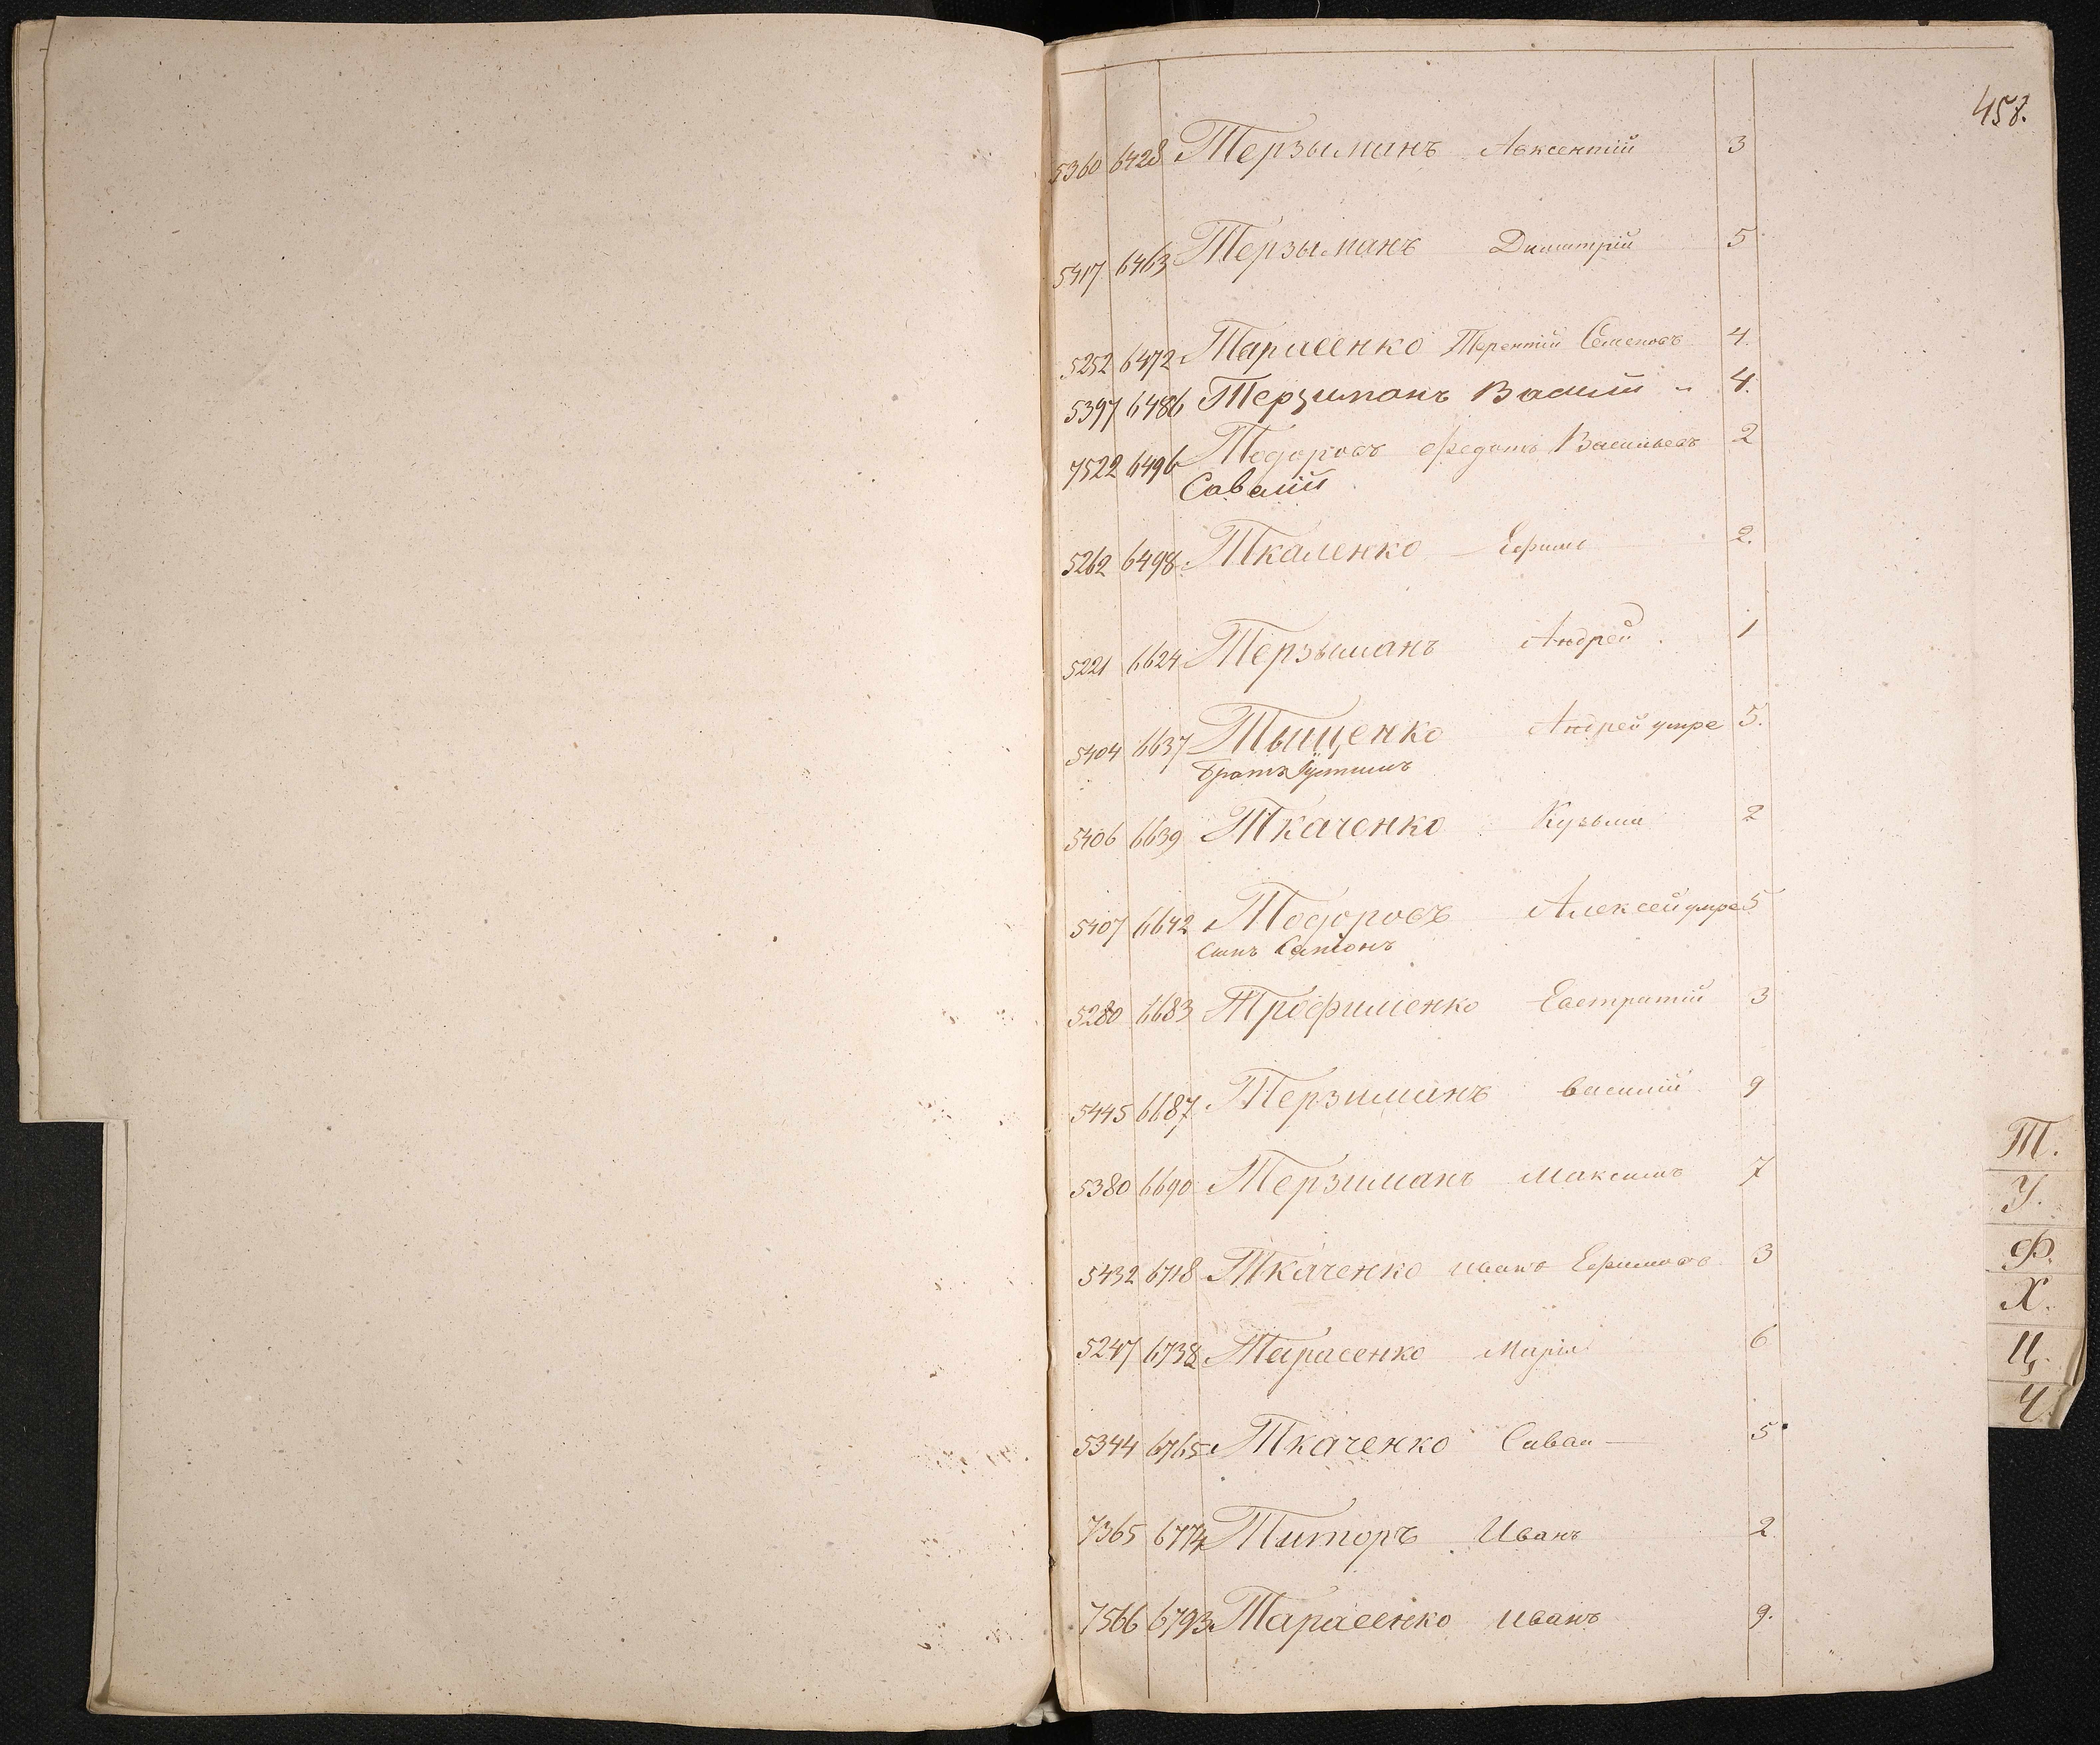 458.
5360 6428 Терзыманъ Авксентий 3
5417 6463 Терзыманъ Димитрій 5
5252 6472 Тарасенко Терентій Семеновъ 4.
5397 6486 Терзиманъ Василій " 4.
7522 6496 Тодоровъ Федотъ Васильевъ 2
Савелій
5262 6498 Ткаленко Ефимъ 2.
5221 6624 Терзыманъ Андрей 1
5404 6637 Тыщенко Андрей умре 5.
братъ Устимъ
5406 6639 Ткаченко Кузьма 2
5407 6642 Тодоровъ Алексей умре 5
Сынъ
5280 6683 Трофименко Евстратій 3
5445 6687 Терзиманъ Василій 9
5380 6690 Терзиманъ Максимъ 7
5432 6718 Ткаченко Иванъ Ефимовъ 3
5247 6738 Тарасенко Марія 6
5344 6765 Ткаченко Савва 5
7365 6774 Титоръ Иванъ 2
7566 6793 Тарасенко Иванъ 9.
Т.
У.
Ф.
Х.
Ц.
Ч.